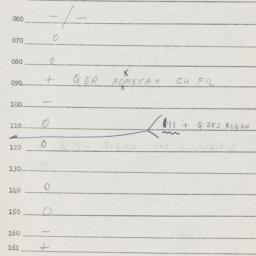 060 -/-
070 0
080 0
090 + QER XOMECAX CU FIL
100 -
110 0
111 + QZEJ BLEKU
120 0
130
140 0
150 0
160 -
161 +